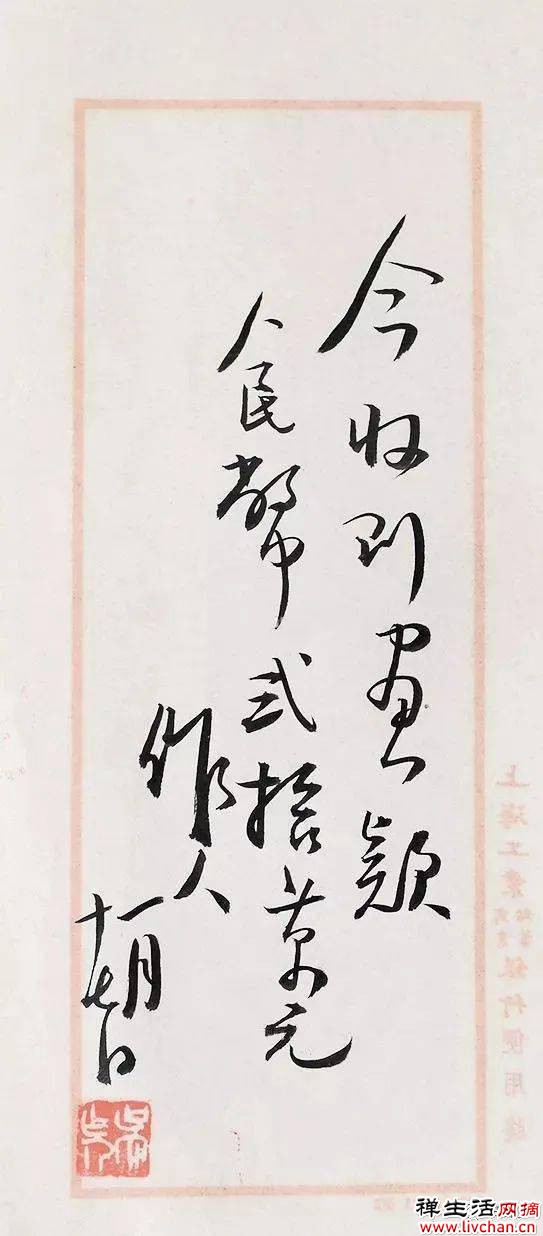 今收到畫款
人民幣弍拾萬元
作人
十一月七日
上海工業
銀行便用牋
禅生活网摘
www.livchan.cn